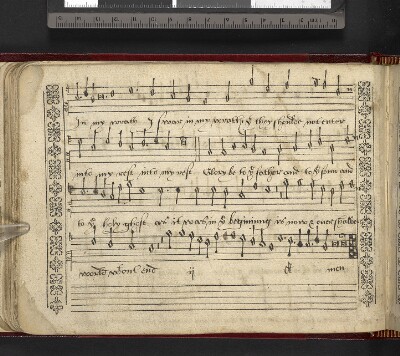 In my wrath I sware in my wrath yt they shoulde not enter
into my rest into my rest Glory be to ye father and to ye sonne and
to ye holy ghost as it was in ye beginning is now & ever shalbe
world wthout end ij men